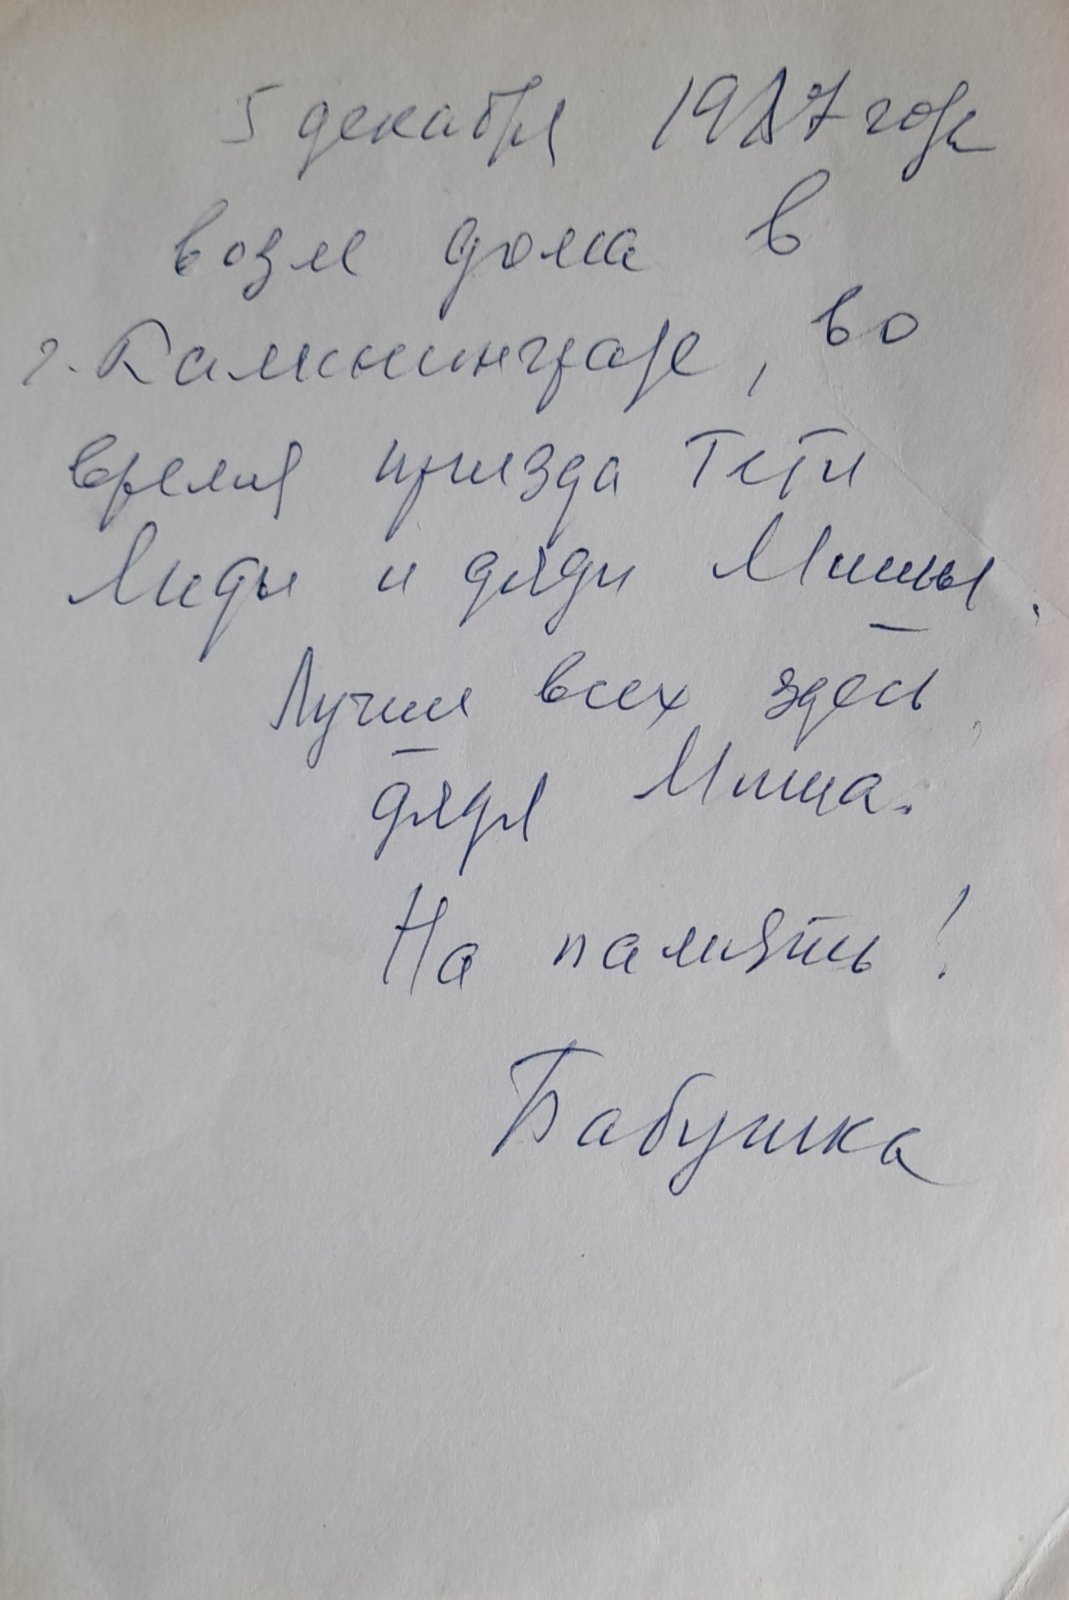 5 декабря 1987 года
возле дома в
г. Калининграде, во
время приезда тети
Лиды и дяди Миши.
Лучше всех здесь
дядя Миша.
На память!
Бабушка